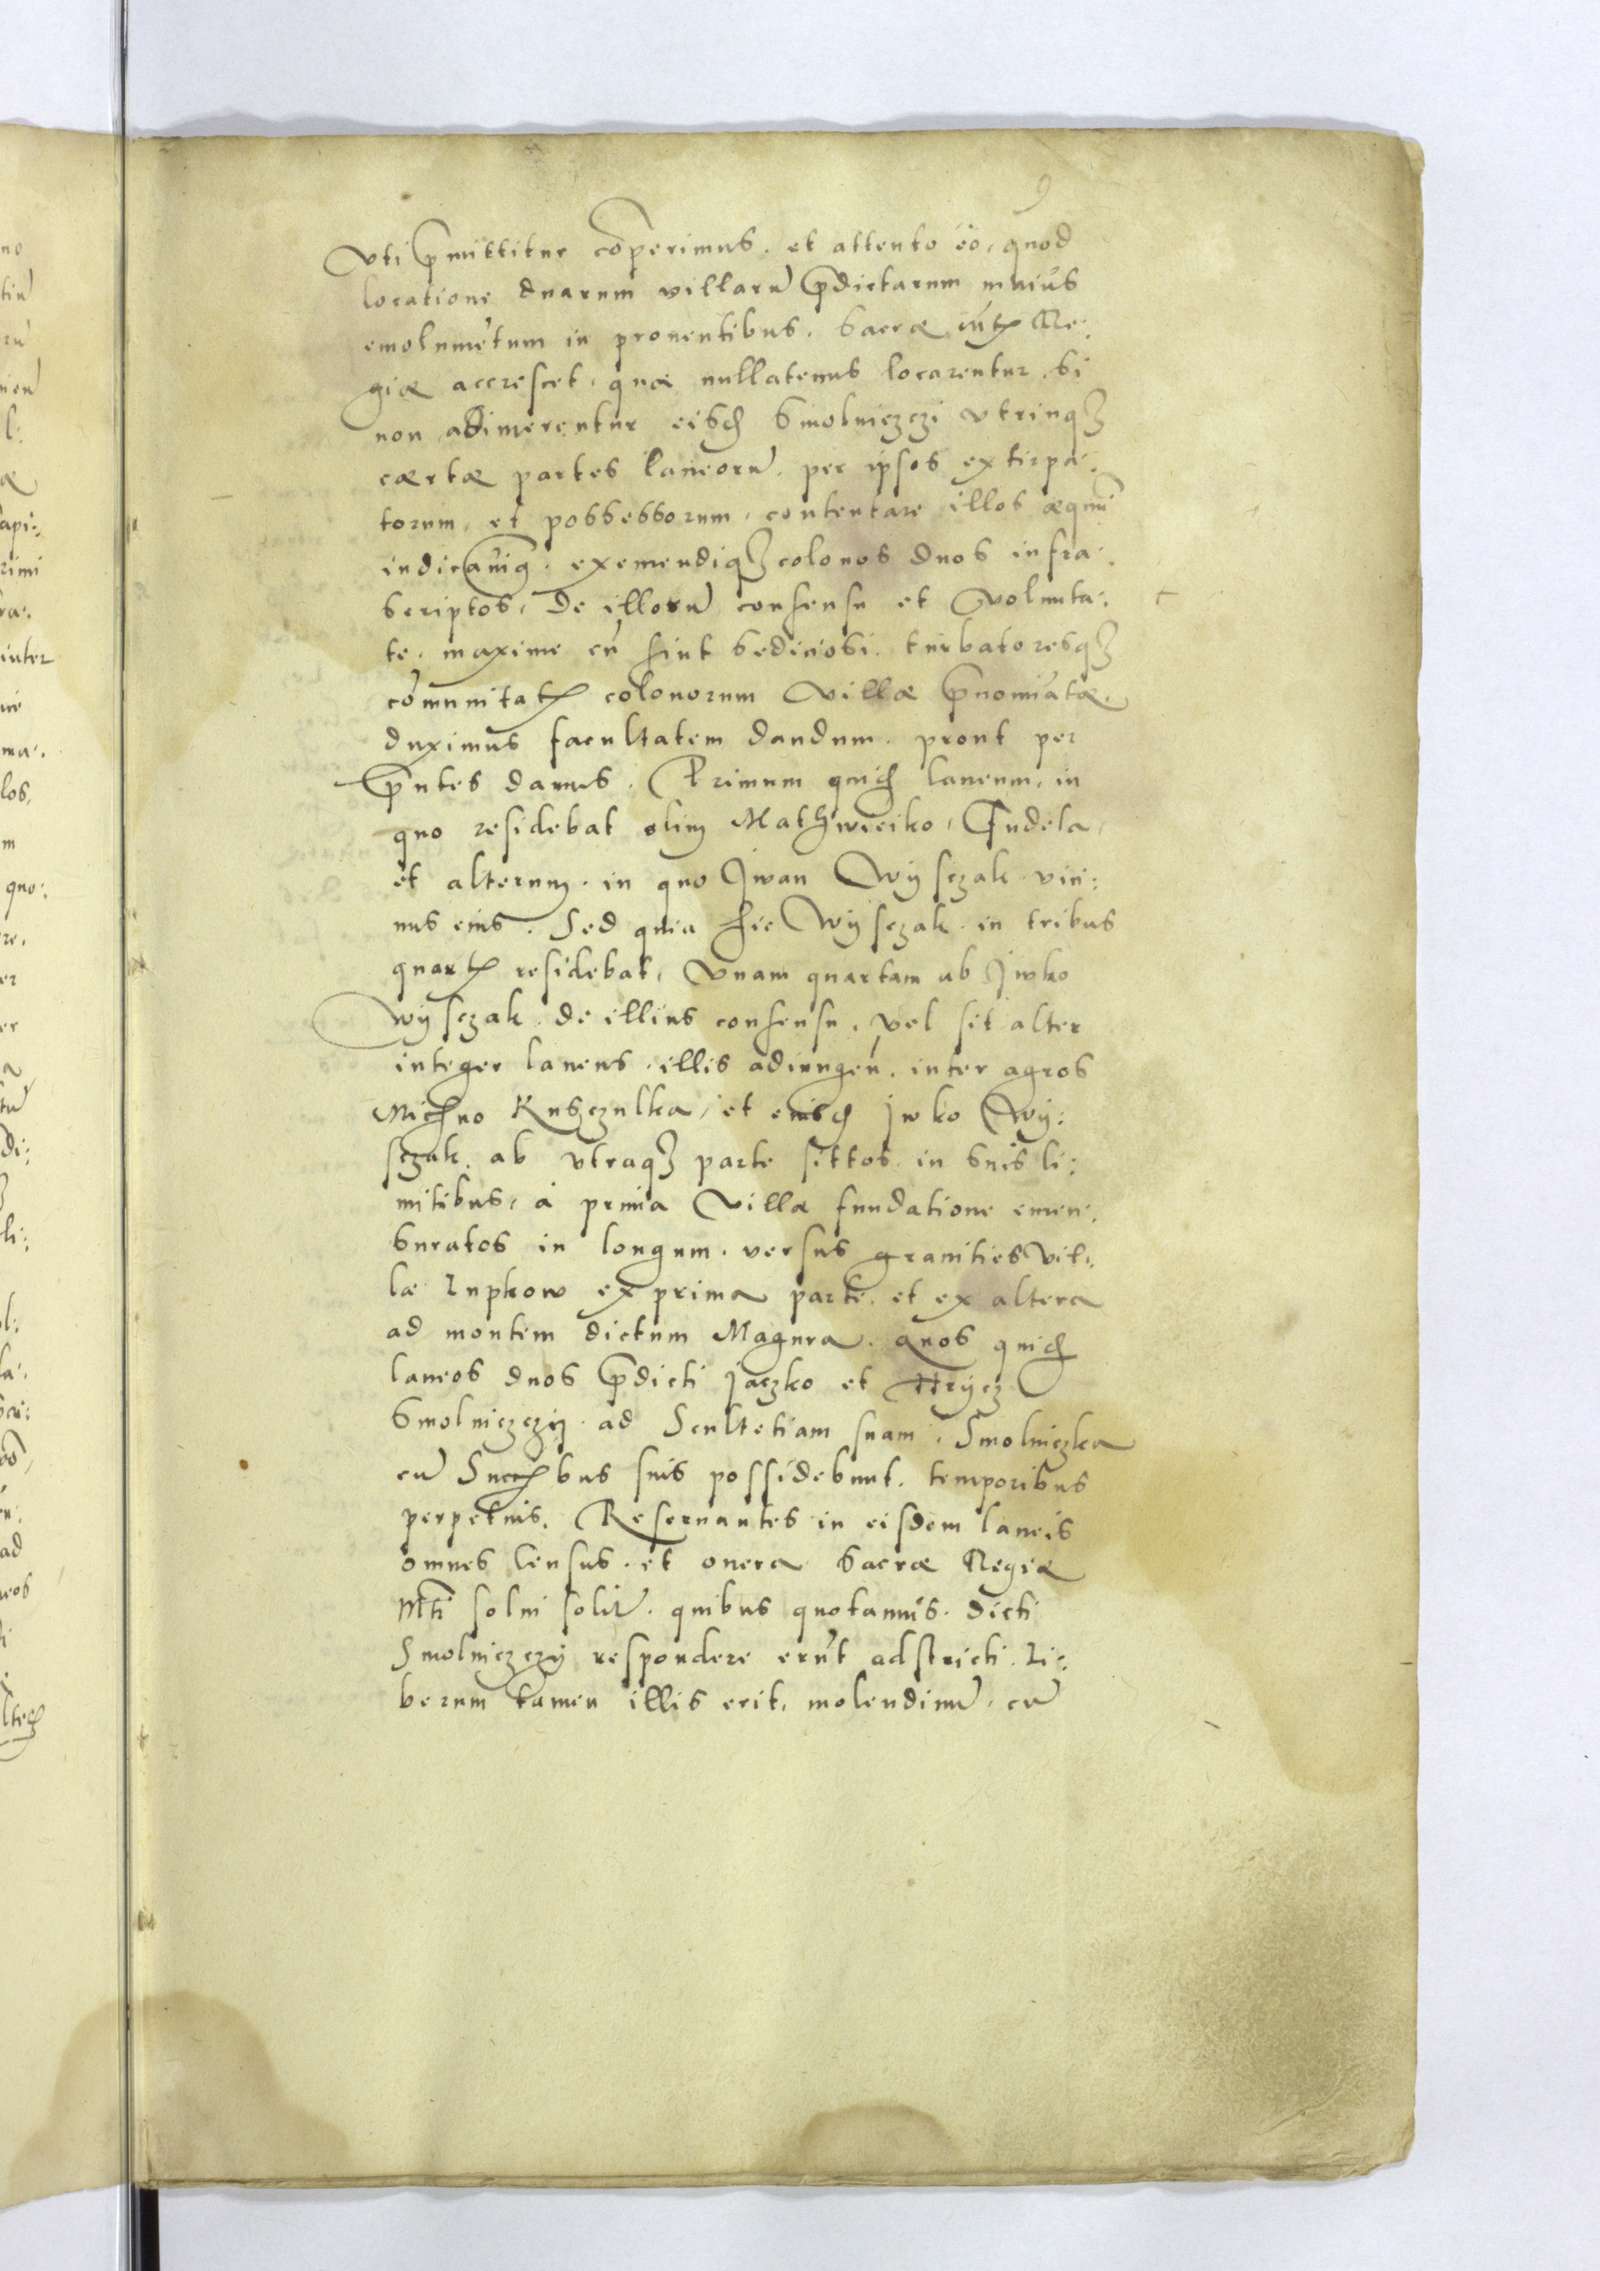 9
Vti p̄mittitur cōperimus. et attento eo, quod
locatione duarum villarū p̄dictarum maius
emolumētum in prouentibus. Sacræ Re:
giæ accrescet, quæ nullatenus locarentur. si
non adimerentur Smolniczczi vtrinq3
cærtæ partes laneorū. per ipsos extirpa:
torum, et possessorum, contentare illos æquū
exemendiq3 colonos duos infra:
scriptos, de illorū consensu et volunta:
te. maxime cū sint sediciosi. turbatoresq3
cōmunitatꝭ colonorum villæ p̄nomiatæ.
duximus facultatem dandum. prout per
p̄ntes damus. Primum laneum, in
quo residebat olim Mathwieiko, Gudela,
et alterum. in quo Jwan Wÿsczak. vici:
nus eius. Sed quia hic Wÿsczak. in tribus
quartꝭ residebat, vnam quartam ab Jwko
Wÿsczak. de illius consensu, vel sit alter
integer laneus. illis adiungeń. inter agros
Michno Kusczulka, et Jwko Wÿ:
sczak. ab vtraq3 parte sittos. in suis li:
mitibus, à prima villæ fundatione emen:
suratos in longum. versus granities vil:
læ Lupkow ex prima parte. et ex altera
ad montem dictum Magura. quos
laneos duos p̄dicti Jaczko et Hrÿcz
Smolniczczÿ. ad Scultetiam suam. Smolniczka
cū suis possidebunt. temporibus
perpetuis. Reseruantes in eisdem laneis
omnes Census. et onera Sacræ Regiæ
Mti solui. quibus quotannis. dicti
Smolniczczÿ respondere erūt adstricti. Li:
berum tamen illis erit. molendinū. cū